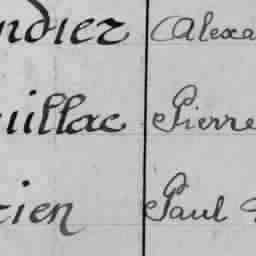 ndier Alexa
uillac Pierre
cien Paul